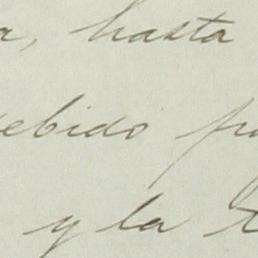 a, hasta
ebido
y la